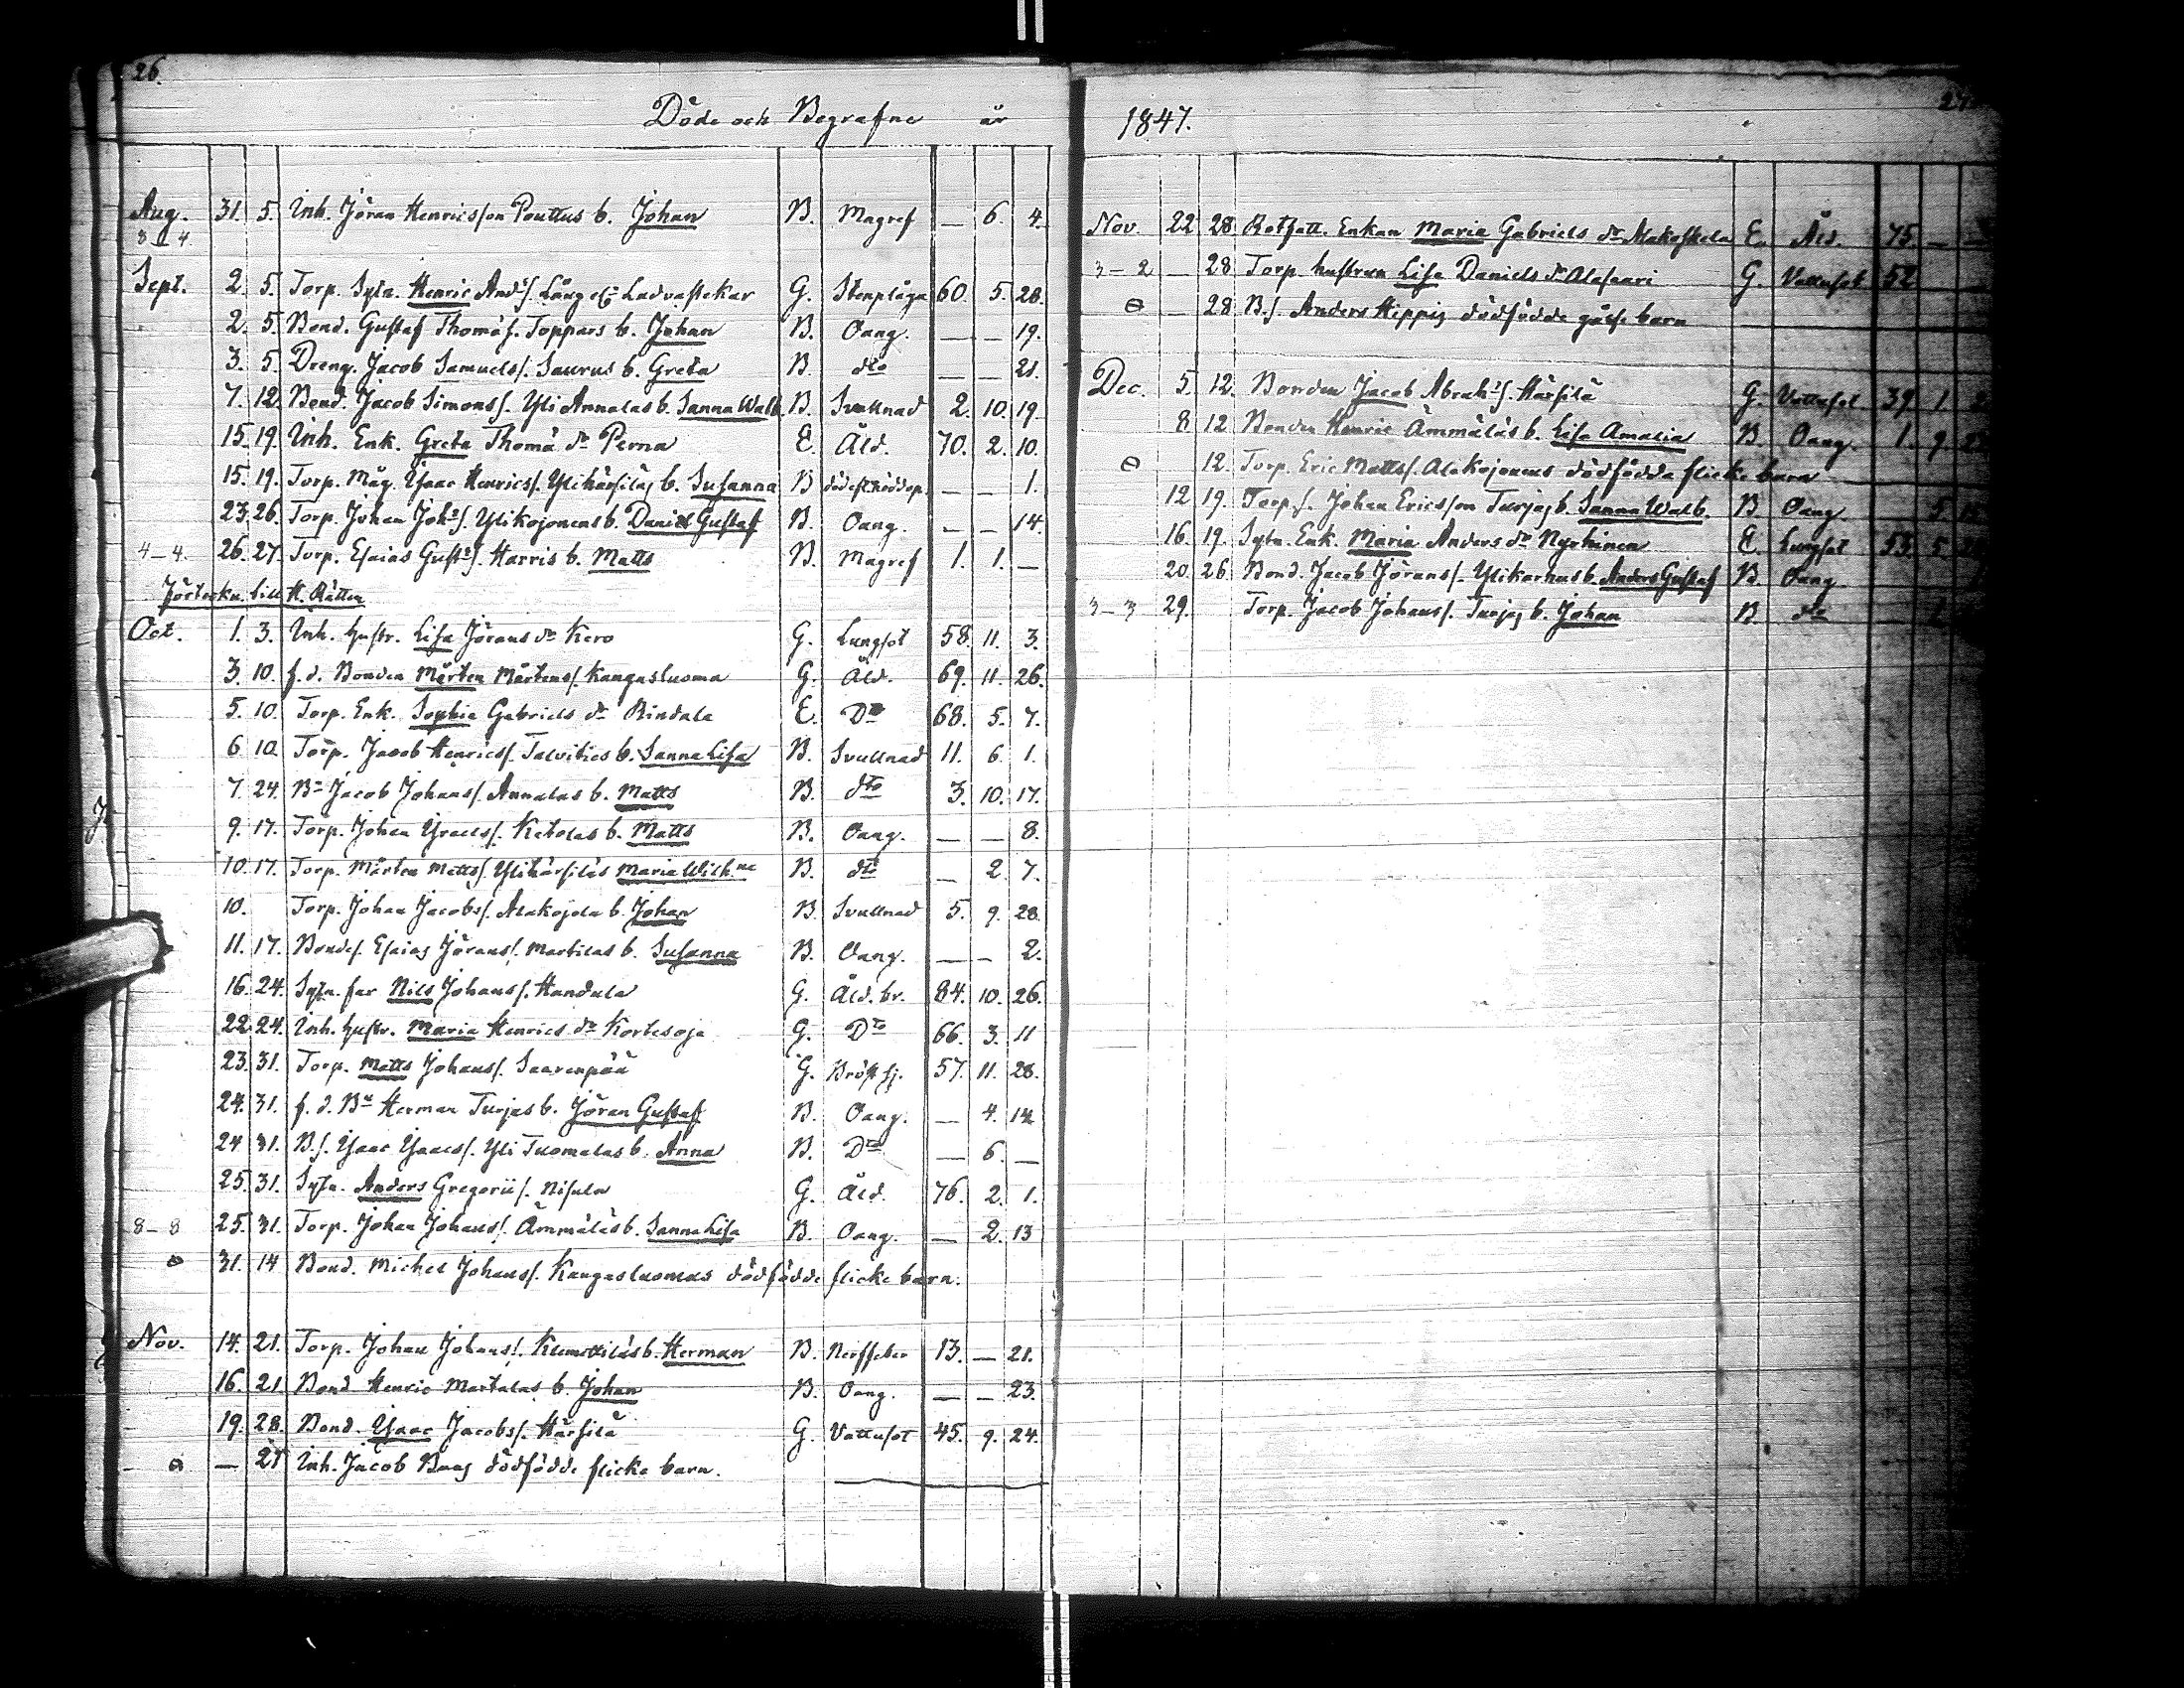 26.
Döde och Begrafne år
Aug. 31. 5. Inh. Jöran Henricsson Pouttus b. Johan B. Magref — 6. 4.
8 4.
Sept. 2. 5. Torp. Sytn. Henric And:s. Lång Ladvastekar G. Stenplåga 60. 5. 28.
2. 5. Bond. Gustaf Thomæs. Toppars b. Johan B. Oang. — — 19.
3. 5. Dreng. Jacob Samuels. Saurus b. Greta B. dto — — 21.
7. 12. Bond. Jacob Simons. Yli Annalas b. Sanna Walb. B. Svullnad 2. 10. 19.
15. 19. Inh. Enk. Greta Thomæ dr Perna E. Åld. 70. 2. 10.
15. 19. Torp. Måg. Isaac Henrics. Ylihärsiläs b. Susanna B — — 1.
23. 26. Torp. Johan Joh:s. Ylikojonens b. Daniel Gustaf B. Oang. — — 14.
4–4. 26. 27. Torp. Esaias Gust:s. Harris b. Matts B. Magref 1. 1. —
till H. Rätten
Oct. 1. 3. Inh. hustr. Lisa Jörans dr Kero G. Lungsot 58. 11. 3.
3. 10. f. d. Bonden Mårten Mårtens. Kangasluoma G. Åld. 69. 11. 26.
5. 10. Torp. Enk. Sophia Gabriels dr Rindala E. Dto 68. 5. 7.
6 10. Torp. Jacob Henrics. Talvities b. Sanna Lisa B. Svullnad 11. 6. 1.
7. 24. Bn Jacob Johans. Annalas b. Matts B. dto 3. 10. 17.
9. 17. Torp. Johan Israels. Ketolas b. Matts B. Oang. — — 8.
10. 17. Torp. Mårten Matts. Ylihärsiläs Maria Wilh.na B. dto — 2. 7.
10. Torp. Johan Jacobs. Alakojola b. Johan B. Svullnad 5. 9. 28.
11. 17. Bondes. Esaias Jörans. Martilas b. Susanna B. Oang. — — 2.
16. 24. Sytn. far Nils Johans. Handula G. Åld. br. 84. 10. 26.
22. 24. Inh. hustr. Maria Henrics dr Kortesoja G. Dto 66. 3. 11
23. 31. Torp. Matts Johans. Saarenpää G. Bröst sj. 57. 11. 28.
24. 31. f. d. Bn Herman Turjas b. Jöran Gustaf B. Oang. — 4. 14
24 31. B.s. Isaac Isaacs. Yli Tuomalas b. Anna B. Dto — 6. —
25. 31. Sytn. Anders Gregorii s. Nisula G. Åld. 76. 2. 1.
8–8 25. 31. Torp. Johan Johans. Ämmäläs b. Sanna Lisa B. Oang. — 2. 13
31. 14 Bond. Michel Johans. Kangasluomas dödfödde flicke barn.
Nov. 14. 21. Torp. Johan Johans. Klemettiläs b. Herman B. Nerffeber 13. — 21.
16. 21 Bond. Henric Martalas b. Johan B. Oang. — — 23.
19. 28. Bond. Isaac Jacobs. Härsilä G. Vattusot 45. 9. 24.
— Inh. Jacob Baas dödfödde flicke barn.
1847.
Nov. 22 28 Enkan Maria Gabriels dr Alakoskela E. Åld. 75. —
3–2 — 28 Torp. hustrun Lisa Daniels dr Alasaari G. Vattusot 52
— 28 B.s. Anders Hippis dödfödde gåsse barn
Dec. 5. 12. Bonden Jacob Abrah:s. Härsilä G. Vattusot 39. 1.
8 12 Bonden Henric Ämmäläs b. Lisa Amalia B. Oang. 1. 9.
12. Torp. Eric Matts. Alakojonens dödfödda flicke barn
12 19. Torp.s. Johan Ericsson Turjas b. Sanna Walb. B. Oang. 5
16. 19. Sytn. Enk. Maria Anders dr Nyrhinen E. Lungsot 53. 5.
20. 26 Bond. Jacob Jörans. Ylikarhus b. Anders Gustaf B. Oang.
3–3 29. Torp. Jacob Johans. Turjas b. Johan B. dto